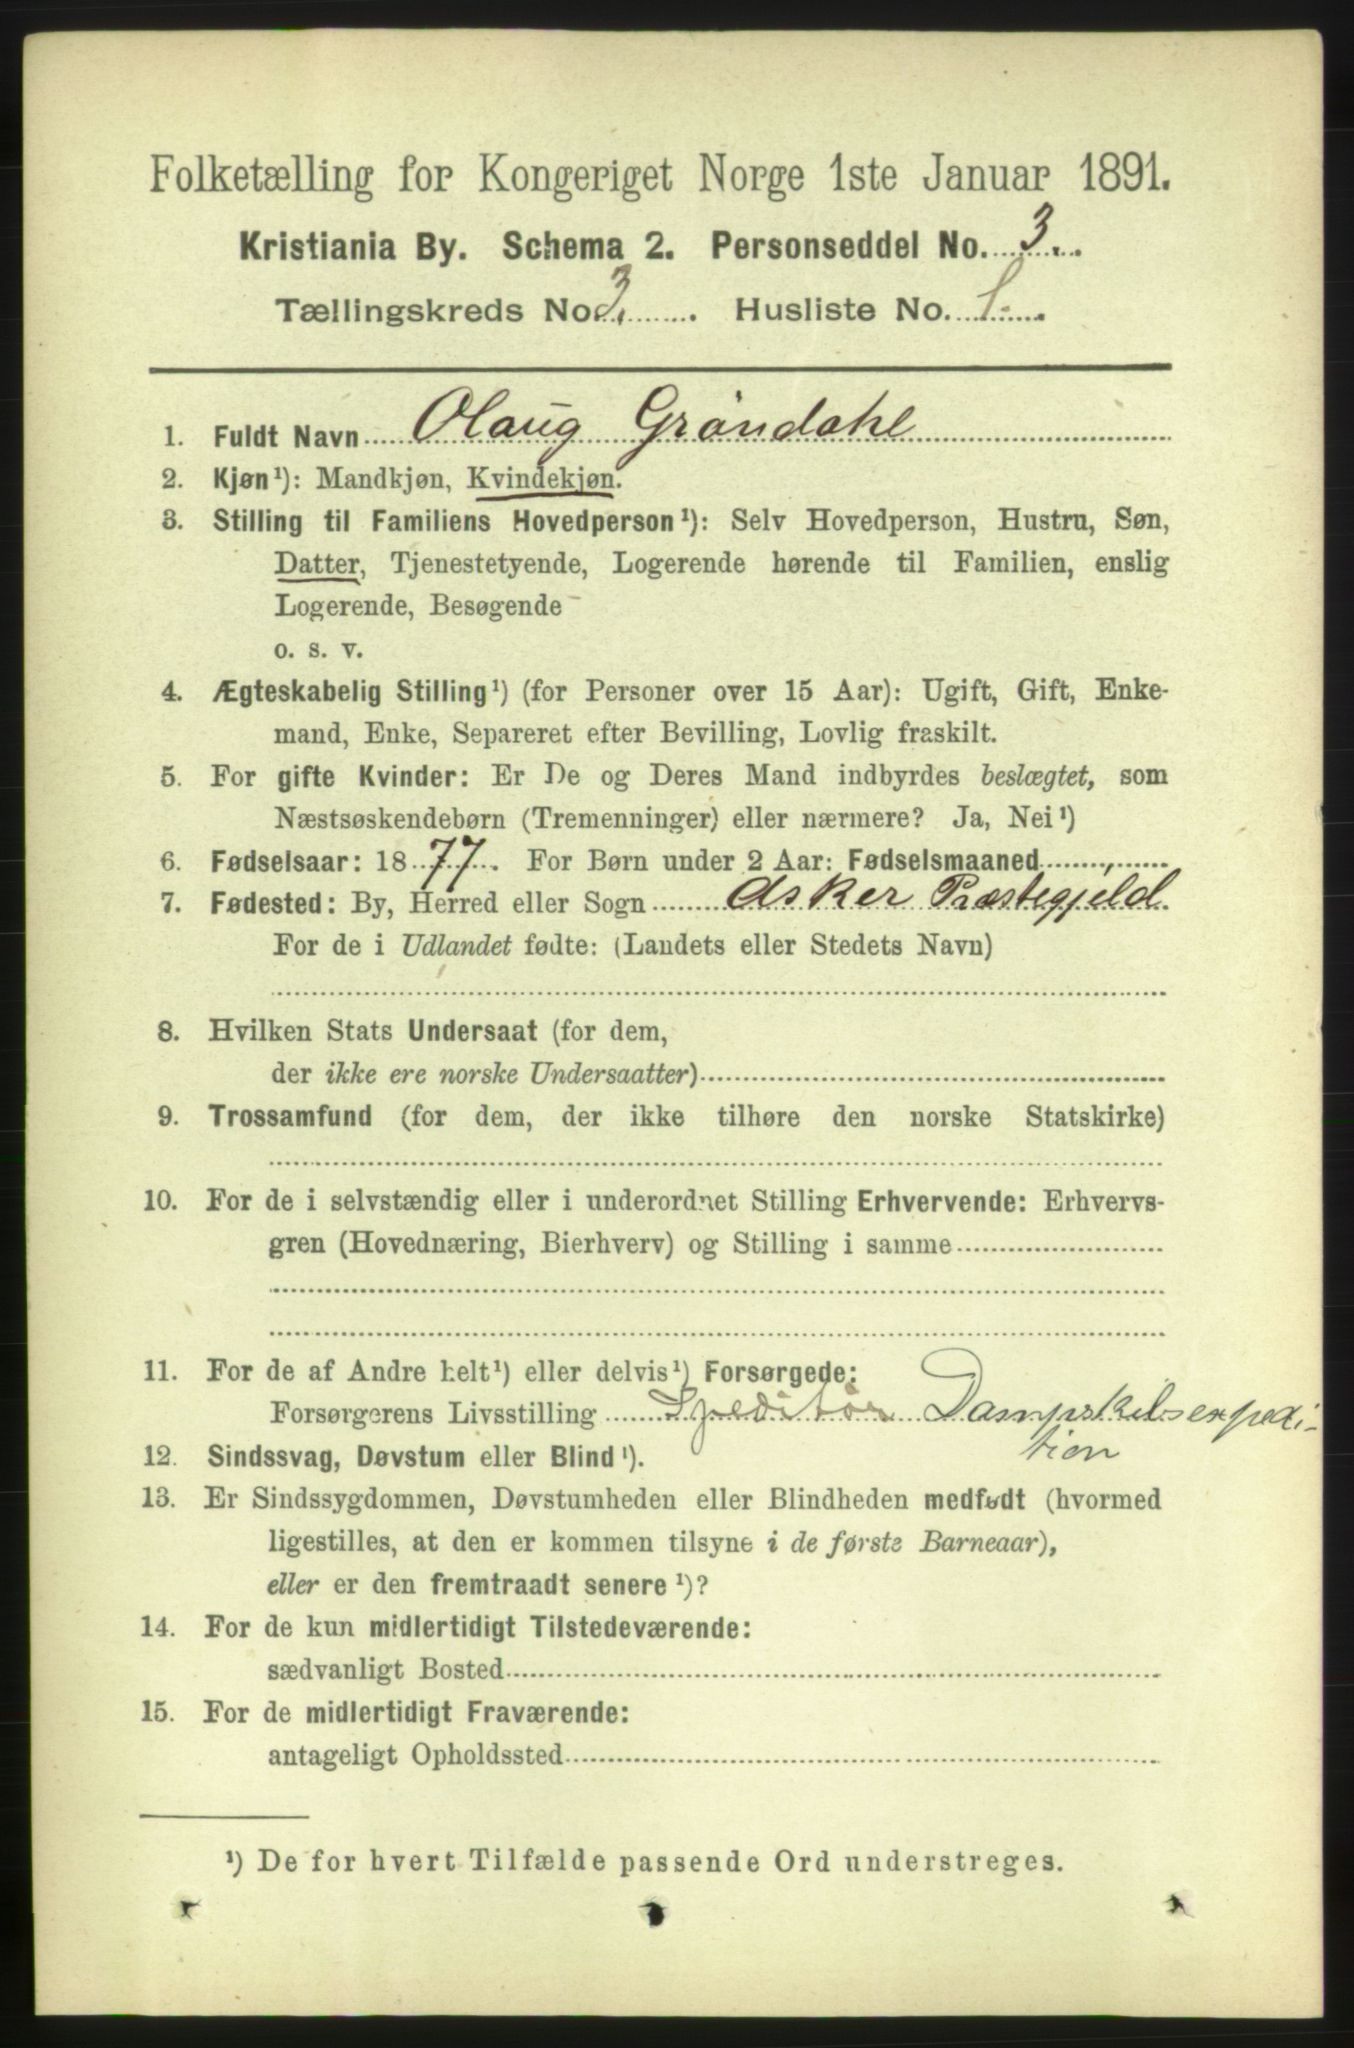 Folketælling for Kongeriget Norge 1ste Januar 1891.
Kristiania By. Schema 2. Personseddel No. 3.
Tællingskreds No. 3. Husliste No. 1.
1. Fuldt Navn Olaug Gröndahl
2. Kjøn¹): Mandkjøn, Kvindekjøn.
3. Stilling til Familiens Hovedperson¹): Selv Hovedperson, Hustru, Søn,
Datter, Tjenestetyende, Logerende hørende til Familien, enslig
Logerende, Besøgende
o. s. v.
4. Ægteskabelig Stilling¹) (for Personer over 15 Aar): Ugift, Gift, Enke-
mand, Enke, Separeret efter Bevilling, Lovlig fraskilt.
5. For gifte Kvinder: Er De og Deres Mand indbyrdes beslægtet, som
Næstsøskendebørn (Tremenninger) eller nærmere? Ja, Nei¹)
6. Fødselsaar: 1877. For Børn under 2 Aar: Fødselsmaaned
7. Fødested: By, Herred eller Sogn Asker Præstegjeld.
For de i Udlandet fødte: (Landets eller Stedets Navn)
8. Hvilken Stats Undersaat (for dem,
der ikke ere norske Undersaatter)
9. Trossamfund (for dem, der ikke tilhøre den norske Statskirke)
10. For de i selvstændig eller i underordnet Stilling Erhvervende: Erhvervs-
gren (Hovednæring, Bierhverv) og Stilling i samme
11. For de af Andre helt¹) eller delvis¹) Forsørgede:
Forsørgerens Livsstilling Speditör Dampskibsexpedi-
tion
12. Sindssvag, Døvstum eller Blind¹).
13. Er Sindssygdommen, Døvstumheden eller Blindheden medfødt (hvormed
ligestilles, at den er kommen tilsyne i de første Barneaar),
eller er den fremtraadt senere¹)?
14. For de kun midlertidigt Tilstedeværende:
sædvanligt Bosted
15. For de midlertidigt Fraværende:
antageligt Opholdssted
¹) De for hvert Tilfælde passende Ord understreges.